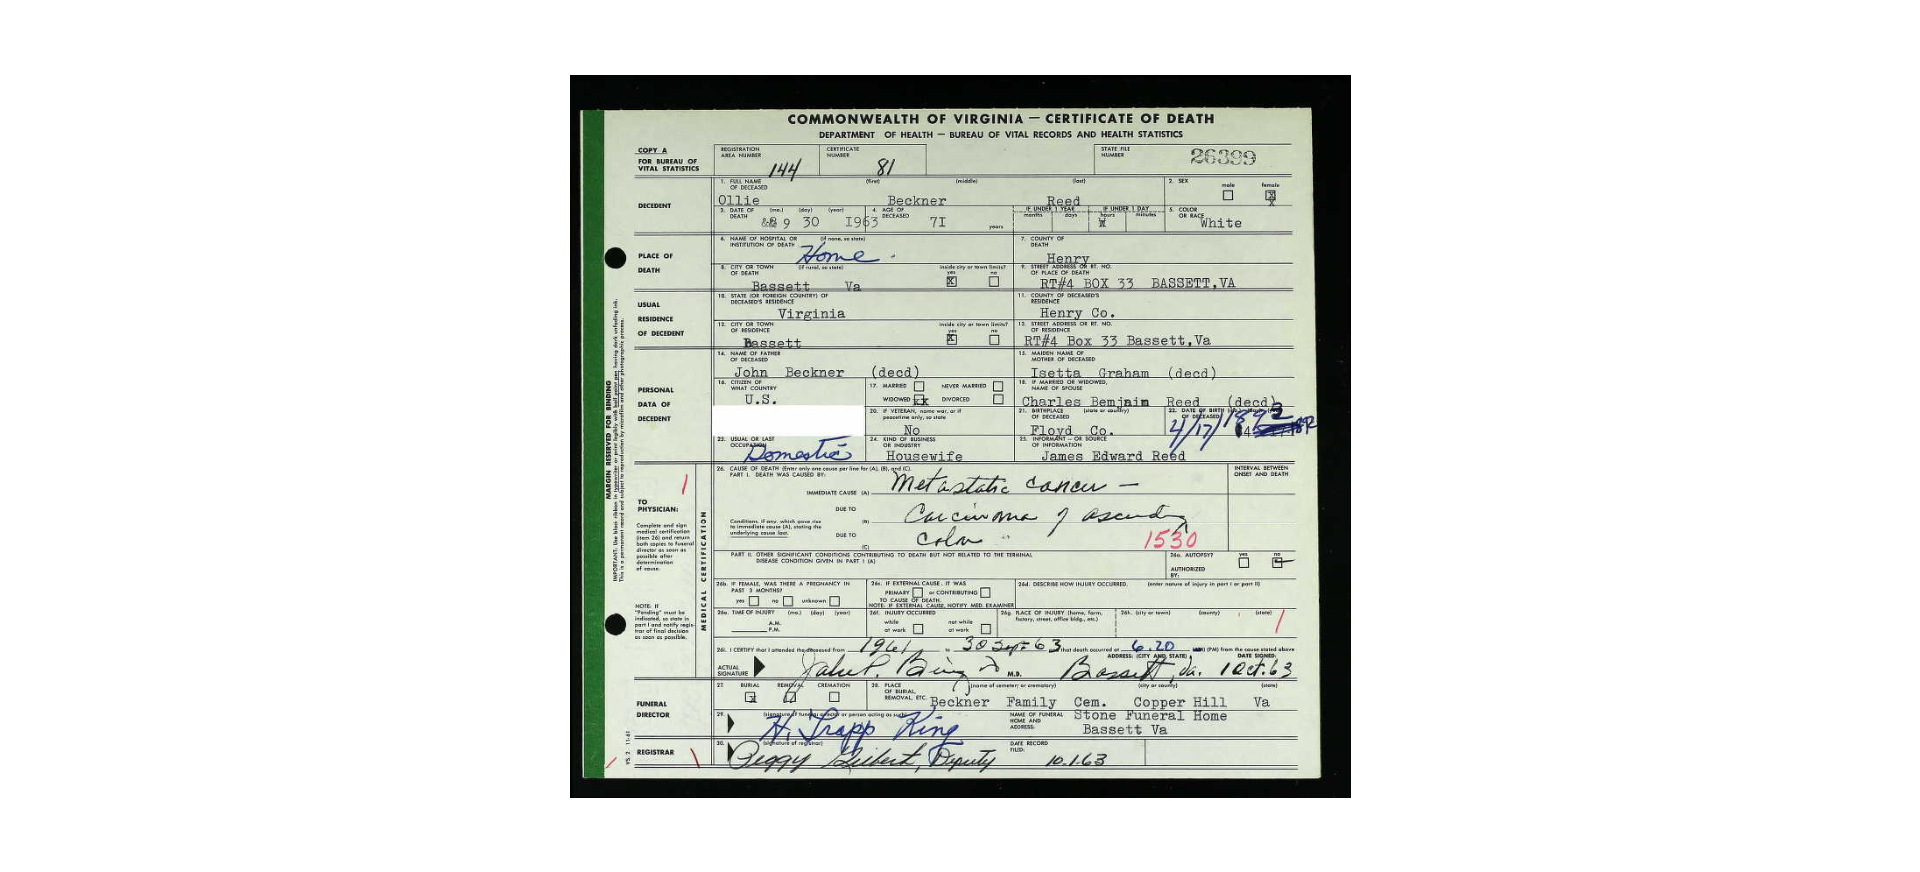 COMMONWEALTH OF VIRGINIA — CERTIFICATE OF DEATH
DEPARTMENT OF HEALTH — BUREAU OF VITAL RECORDS AND HEALTH STATISTICS
COPY A
FOR BUREAU OF VITAL STATISTICS
REGISTRATION AREA NUMBER 144
CERTIFICATE NUMBER 81
STATE FILE NUMBER 26399
DECEDENT
1. FULL NAME OF DECEASED (first) (middle) (last)
Ollie Beckner Reed
2. SEX male female X
3. DATE OF DEATH (mo.) (day) (year) 9 30 1963
4. AGE OF DECEASED 71 years
IF UNDER 1 YEAR months days
IF UNDER 1 DAY hours minutes
5. COLOR OR RACE White
PLACE OF DEATH
6. NAME OF HOSPITAL OR INSTITUTION OF DEATH (if none, so state) Home
7. COUNTY OF DEATH Henry
8. CITY OR TOWN OF DEATH (if rural, so state) Bassett Va
inside city or town limits? yes X no
9. STREET ADDRESS OR RT. NO. OF PLACE OF DEATH RT#4 BOX 33 BASSETT,VA
USUAL RESIDENCE OF DECEDENT
10. STATE (OR FOREIGN COUNTRY) OF DECEASED'S RESIDENCE Virginia
11. COUNTY OF DECEASED'S RESIDENCE Henry Co.
12. CITY OR TOWN OF RESIDENCE Bassett
inside city or town limits? yes X no
13. STREET ADDRESS OR RT. NO. OF RESIDENCE RT#4 Box 33 Bassett,Va
PERSONAL DATA OF DECEDENT
14. NAME OF FATHER OF DECEASED John Beckner (decd)
15. MAIDEN NAME OF MOTHER OF DECEASED Isetta Graham (decd)
16. CITIZEN OF WHAT COUNTRY U.S.
17. MARRIED NEVER MARRIED
WIDOWED XX DIVORCED
18. IF MARRIED OR WIDOWED, NAME OF SPOUSE Charles Bemjnin Reed (decd)
20. IF VETERAN, name war, or if peacetime only, so state No
21. BIRTHPLACE OF DECEASED (state or country) Floyd Co.
22. DATE OF BIRTH OF DECEASED 4/17/1892
23. USUAL OR LAST OCCUPATION Domestic
24. KIND OF BUSINESS OR INDUSTRY Housewife
25. INFORMANT — OR SOURCE OF INFORMATION James Edward Reed
TO PHYSICIAN:
Complete and sign medical certification (item 26) and return both copies to funeral director as soon as possible after determination of cause.
NOTE: If "Pending" must be indicated, so state in part I and notify registrar of final decision as soon as possible.
MEDICAL CERTIFICATION
26. CAUSE OF DEATH (Enter only one cause per line for (A), (B), and (C).
PART I. DEATH WAS CAUSED BY:
INTERVAL BETWEEN ONSET AND DEATH
IMMEDIATE CAUSE (A) Metastatic cancer —
Conditions, if any, which gave rise to immediate cause (A), stating the underlying cause last.
DUE TO (B) Carcinoma of ascending
DUE TO (C) Colon
1530
PART II. OTHER SIGNIFICANT CONDITIONS CONTRIBUTING TO DEATH BUT NOT RELATED TO THE TERMINAL DISEASE CONDITION GIVEN IN PART I (A)
26a. AUTOPSY? yes no
AUTHORIZED BY:
26b. IF FEMALE, WAS THERE A PREGNANCY IN PAST 3 MONTHS? yes no unknown
26c. IF EXTERNAL CAUSE, IT WAS PRIMARY or CONTRIBUTING TO CAUSE OF DEATH.
NOTE: IF EXTERNAL CAUSE, NOTIFY MED. EXAMINER
26d. DESCRIBE HOW INJURY OCCURRED. (enter nature of injury in part I or part II)
26e. TIME OF INJURY (mo.) (day) (year) A.M. P.M.
26f. INJURY OCCURRED while at work not while at work
26g. PLACE OF INJURY (home, farm, factory, street, office bldg., etc.)
26h. (city or town) (county) (state)
26i. I CERTIFY that I attended the deceased from 1961 to 30 Sept 63 that death occurred at 6.20 (PM) from the cause stated above
ACTUAL SIGNATURE M.D.
ADDRESS: (CITY AND STATE) Bassett, Va.
DATE SIGNED: 1 Oct. 63
FUNERAL DIRECTOR
27. BURIAL X REMOVAL CREMATION
28. PLACE OF BURIAL, REMOVAL, ETC. (name of cemetery or crematory) (city or county) (state)
Beckner Family Cem. Copper Hill Va
29. (signature of funeral director or person acting as such) H. Trapp King
NAME OF FUNERAL HOME AND ADDRESS: Stone Funeral Home
Bassett Va
REGISTRAR
30. (signature of registrar) Peggy Gilbert, Deputy
DATE RECORD FILED: 10.1.63
MARGIN RESERVED FOR BINDING
VS 2 11-61